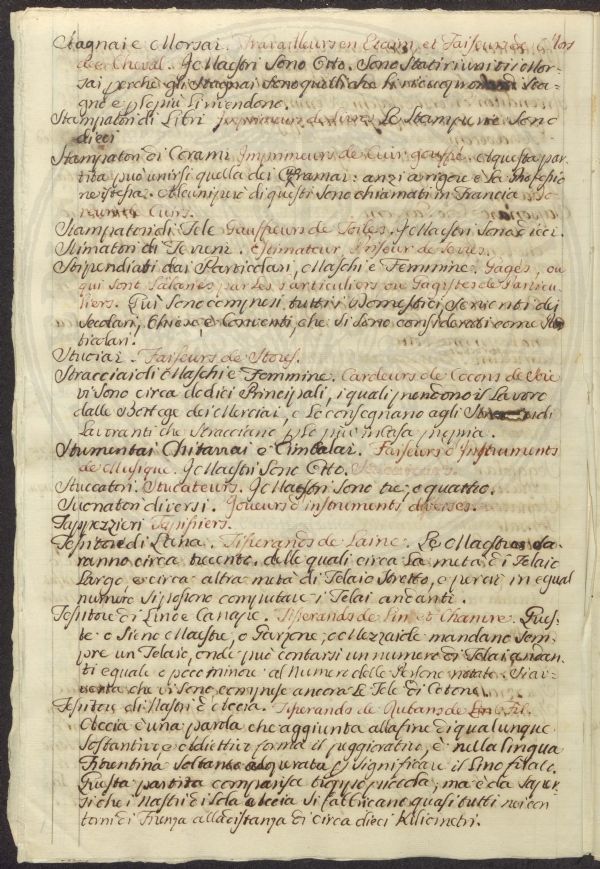 Stagnai e Morsai. Travailleurs en Etaim, et Faiseurs de Mors
de Cheval. I Maestri sono Otto. Sono Stati riuniti i Mor-
sai perchè gli Stagnai sono quelli che li ricuoprono di Sta-
gno e p lo più li vendono.
Stampatori di Libri Imprimeurs de livres Le Stamperie sono
dieci
Stampatori di Corami Imprimeurs de Cuir gauffré. A questa par-
tita può unirsi quella dei Coramai: anzi a rigore è la professio
ne istessa. Alcuni però di questi sono chiamati in Francia
Cuirs.
Stampatori di Tele Gauffeurs de Toiles. I Maestri Sono dieci.
Stimatori di Terreni. Estimateur, Priseur de Terres.
Stipendiati dai Particolari, Maschi e Femmine. Gagés, ou
qui sont Salariés par les Particuliers ou Gagistes de Particu-
liers. Qui sono compresi tutti i Domestici, Serventi dei
Secolari, Chiese, e Conventi, che si sono considerati come Par
ticolari.
Stuoiai. Faiseurs de Stores.
Stracciaioli Maschi e Femmine. Cardeurs de Cocons de Soie
vi sono circa dodici Principali, i quali prendono il Lavoro
dalle Botteghe dei Merciai, e lo consegnano agli
Lavoranti che Stracciano p lo più in Casa propria.
Strumentai Chitarrai e Cimbalai. Faiseurs d'Instruments
de Musique. I Maestri sono Otto.
Stuccatori. Stucateurs. I Maestri sono tre, o quattro.
Suonatori diversi. Joueurs d'instruments diverses.
Tappezzieri Tapissiers.
Tessitore di Lana. Tisserands de Laine. Le Maestre sa-
ranno circa trecento, delle quali circa la metà di Telaio
Largo, e circa altra metà di Telaio Stretto, e perciò in egual
numero si possono computare i Telai andanti.
Tessitore di Lino e Canape. Tisserands de Lin et Chanvre. Ques-
te o sieno Maestre, o Garzone, o Mezzaiole mandano Sem-
pre un Telaio, onde può contarsi un numero di Telai andan-
ti eguale o poco minore al Numero delle Persone notate. Si av-
verta che vi sono comprese ancora le Tele di Cotone.
Tessitore di Nastri e Accia. Tisserands de Rubans de Fil.
Accia è una parola che aggiunta alla fine di qualunque
Sostantivo e Addiettivo forma il peggiorativo, e nella lingua
Fiorentina soltanto p significare il Lino filato.
Questa partita comparisce troppo piccola, ma è da saper-
si che i Nastri di sola Accia si fabbricano quasi tutti nei con
torni di Firenze alla distanza di circa dieci Kilometri.